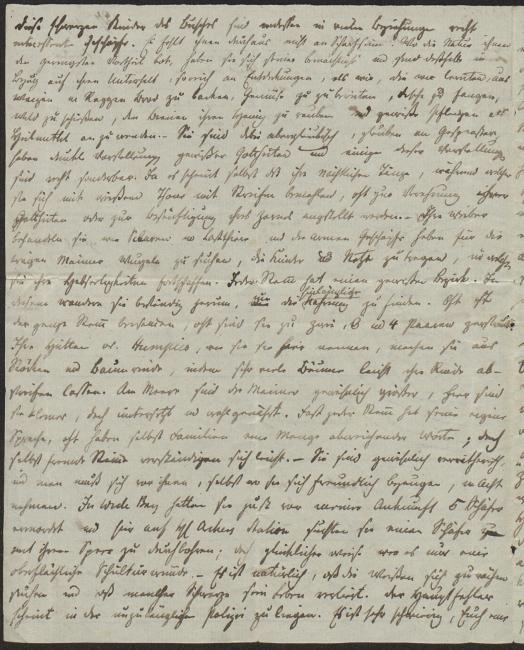 Diese schwarzen Kinder des Busches sind indessen in vielen Beziehungen recht
interessante Geschöpfe. Es fehlt ihnen durchaus nicht an Scharfsinn. Wo die Natur ihnen
den geringsten Vortheil bot, haben sie sich seiner bemächtigt und sind deßhalb in
Bezug auf ihren Unterhalt, so reich an Entdeckungen, als wir, die wir lernten, aus
Weizen u Roggen Brod zu backen, Gemüse zu zubereiten, Fische zu fangen,
Wild zu schießen, den Bienen ihren Honig zu rauben und gewisse Pflanzen als
Heilmittel anzuwenden. – Sie sind dabei abergläubisch, glauben an Gespenster,
haben dunkle Vorstellungen gewißer Gottheiten und einige dieser Vorstellungen
sind recht sonderbar. Ja es scheint selbst daß ihre nächtlichen Tänze, während welcher
sie sich mit weißem Thone mit Streifen bemahlen, oft zur Verehrung ihrer
Gottheiten oder zur Besänftigung ihres Zornes angestellt werden. – Ihre Weiber
behandeln sie wie Sclaven u Lastthiere und die armen Geschöpfe haben für die
trägen Männer Wurzeln zu suchen, die Kinder und Netze zu tragen, in welchen
sie ihre Habseligkeiten fortschaffen. Jeder Stam hat einen gewissen Bezirk. In
diesem wandern sie beständig herum, um die hinlängliche Nahrung zu finden. Oft ist
der ganze Stam beisammen, oft sind sie zu zwei, 3 u 4 Paaren zerstreut.
Ihre Hütten od. Humpies, wie sie sie hier nennen, machen sie aus
Stöcken und Baumrinde, indem sehr viele Bäume leicht ihre Rinde ab-
streifen lassen. Am Meere sind die Männer gewöhnlich größer, hier sind
sie kleiner, doch untersetzt und wohlgenährt. Fast jeder Stam hat seine eigene
Sprache, oft haben selbst Familien eine Menge abweichender Worte; doch
selbst fremde Stäme verständigen sich leicht. – Sie sind gewöhnlich verrätherisch,
und man muß sich vor ihnen, selbst wo sie sich freundlich bezeigen, in Acht
nehmen. In Wide Bay hatten sie just vor meiner Ankunft 5 Schäfer
ermordet und hier auf Archers Station suchten sie einen Schäfer
mit ihren Speer zu durchbohren; doch glücklicher Weise war es nur eine
oberflächliche Schulterwunde. – Es ist natürlich, daß die Weißen sich zu rächen
suchen und daß mancher Schwarze sein Leben verliert. Der Hauptfehler
scheint in der unzulänglichen Polizei zu liegen. Es ist sehr schwierig, Euch von